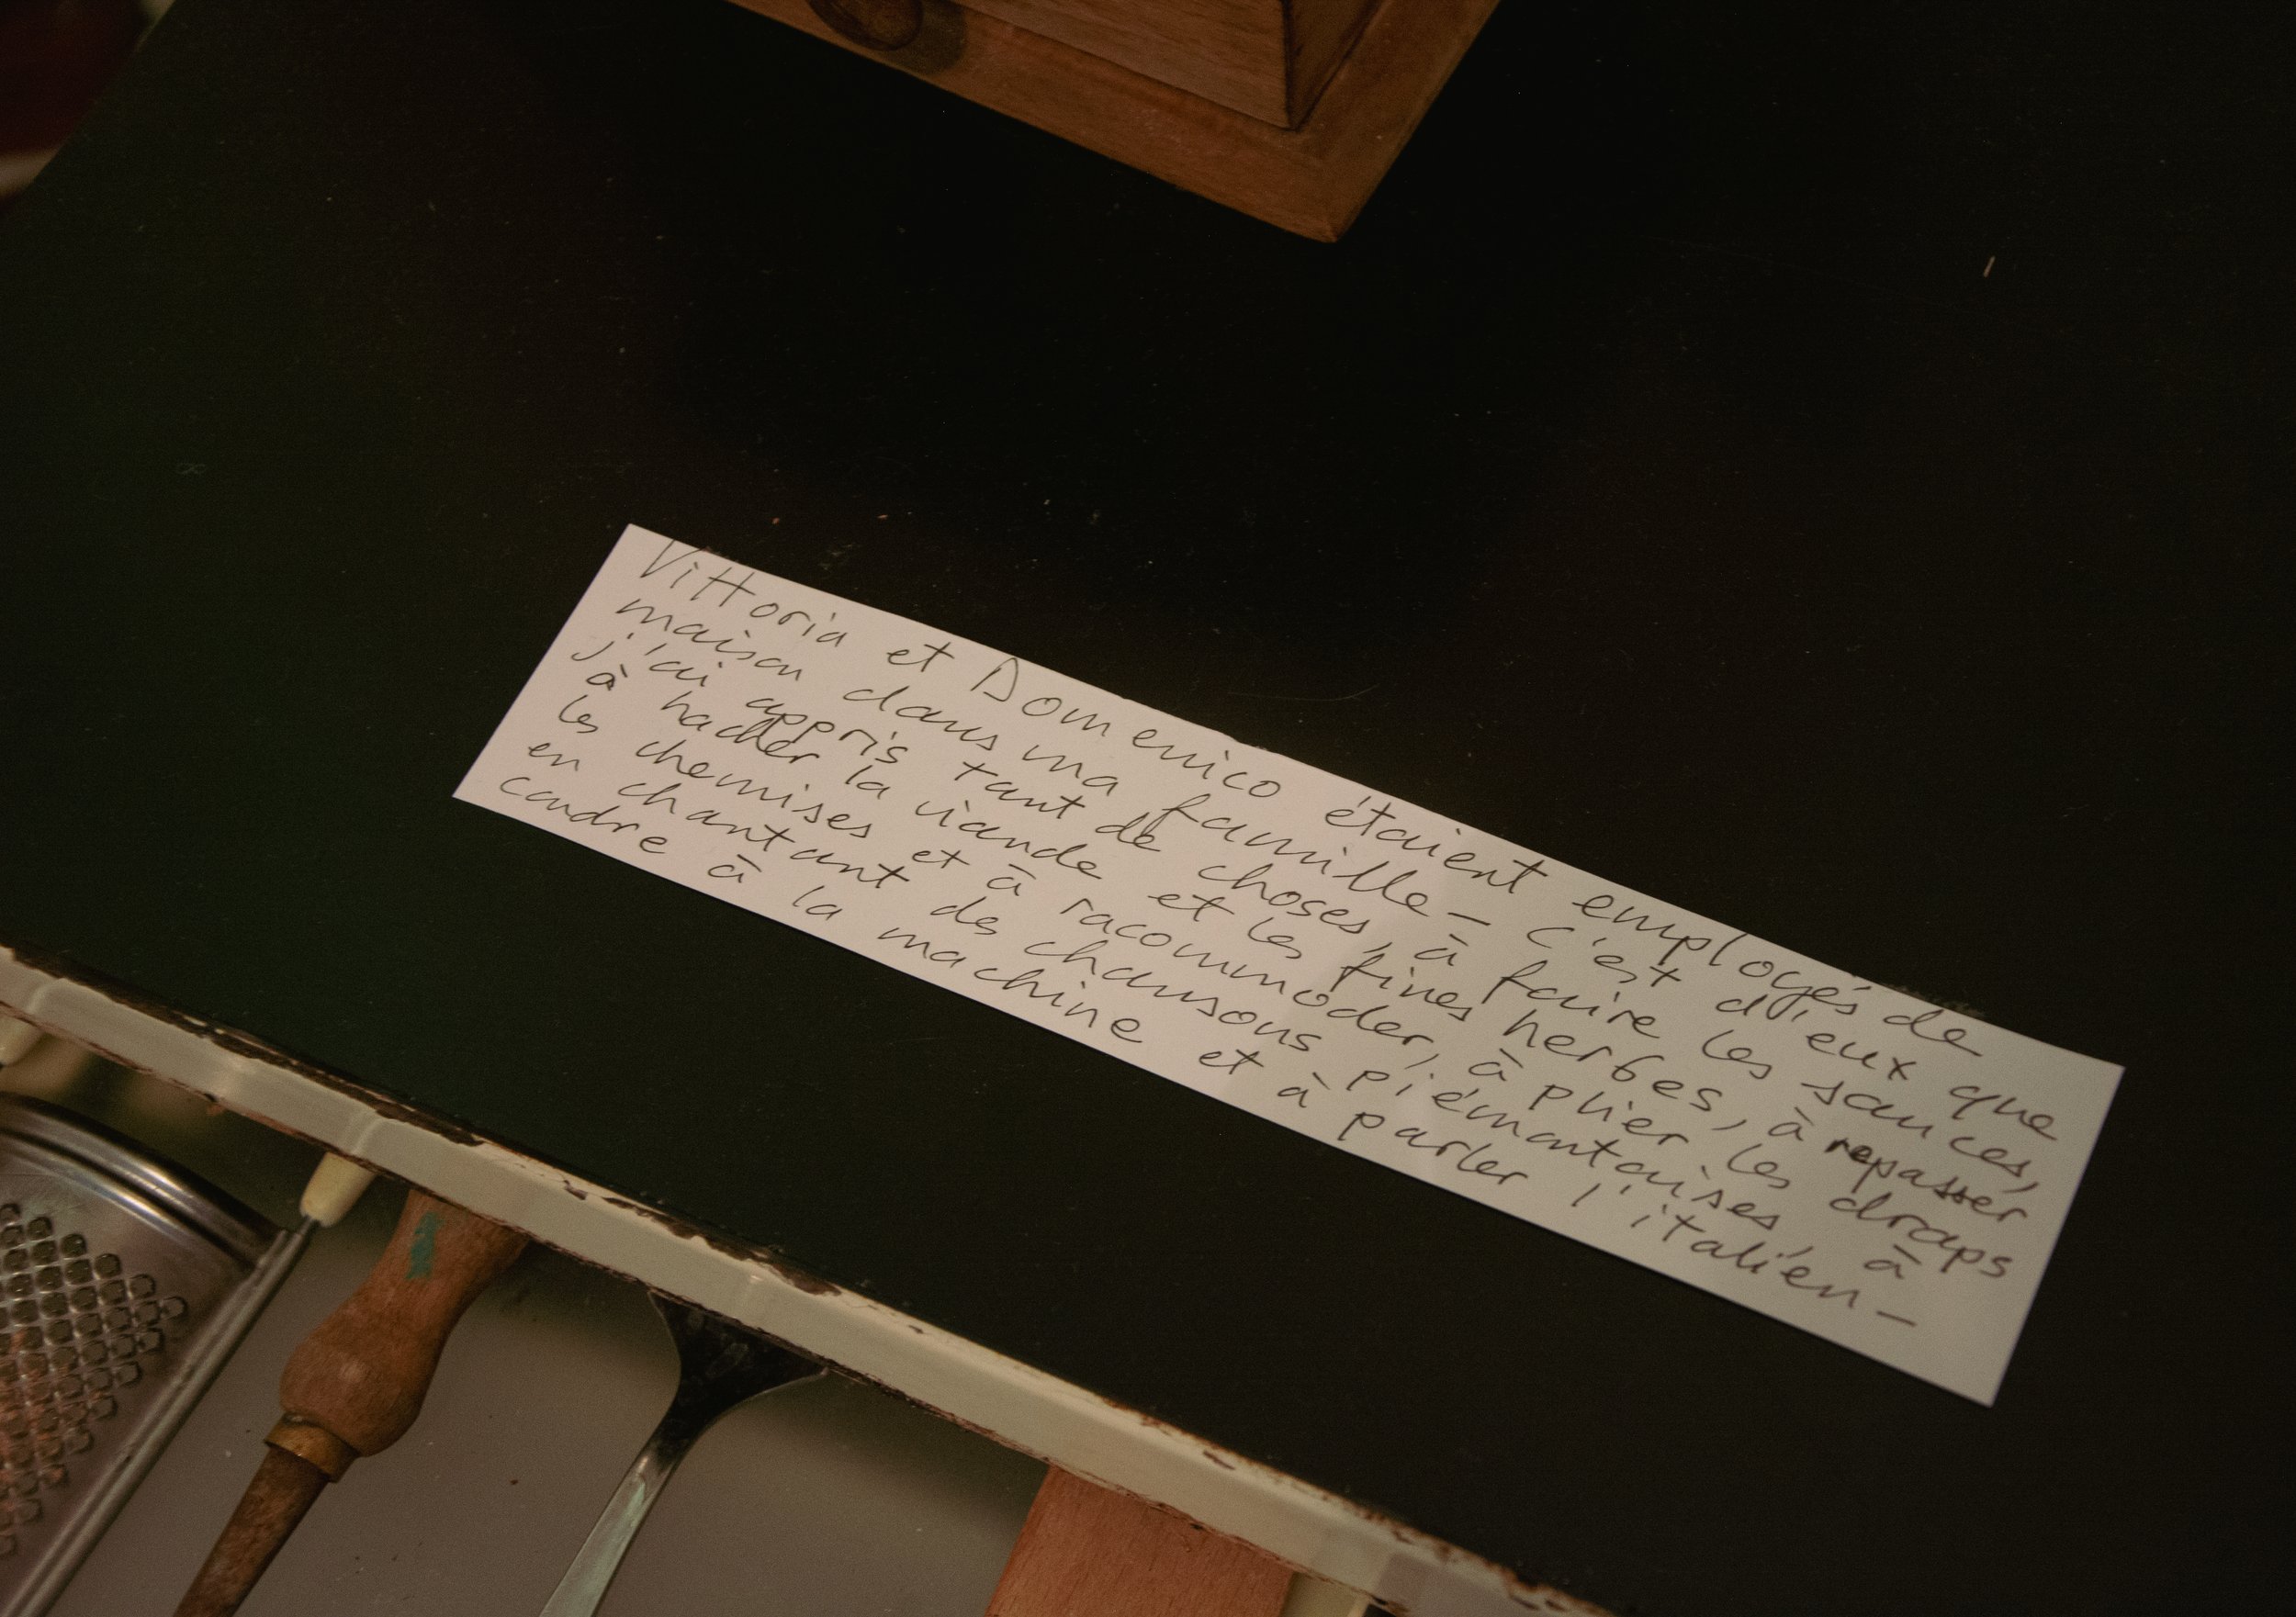 Vittoria et Domenico étaient employés de
maison dans ma famille – c'est d'eux que
j'ai appris tant de choses, à faire les sauces,
à hacher la viande et les fines herbes, à repasser
les chemises et à racommoder, à plier les draps
en chantant des chansons piémontaises à
coudre à la machine et à parler l'italien –